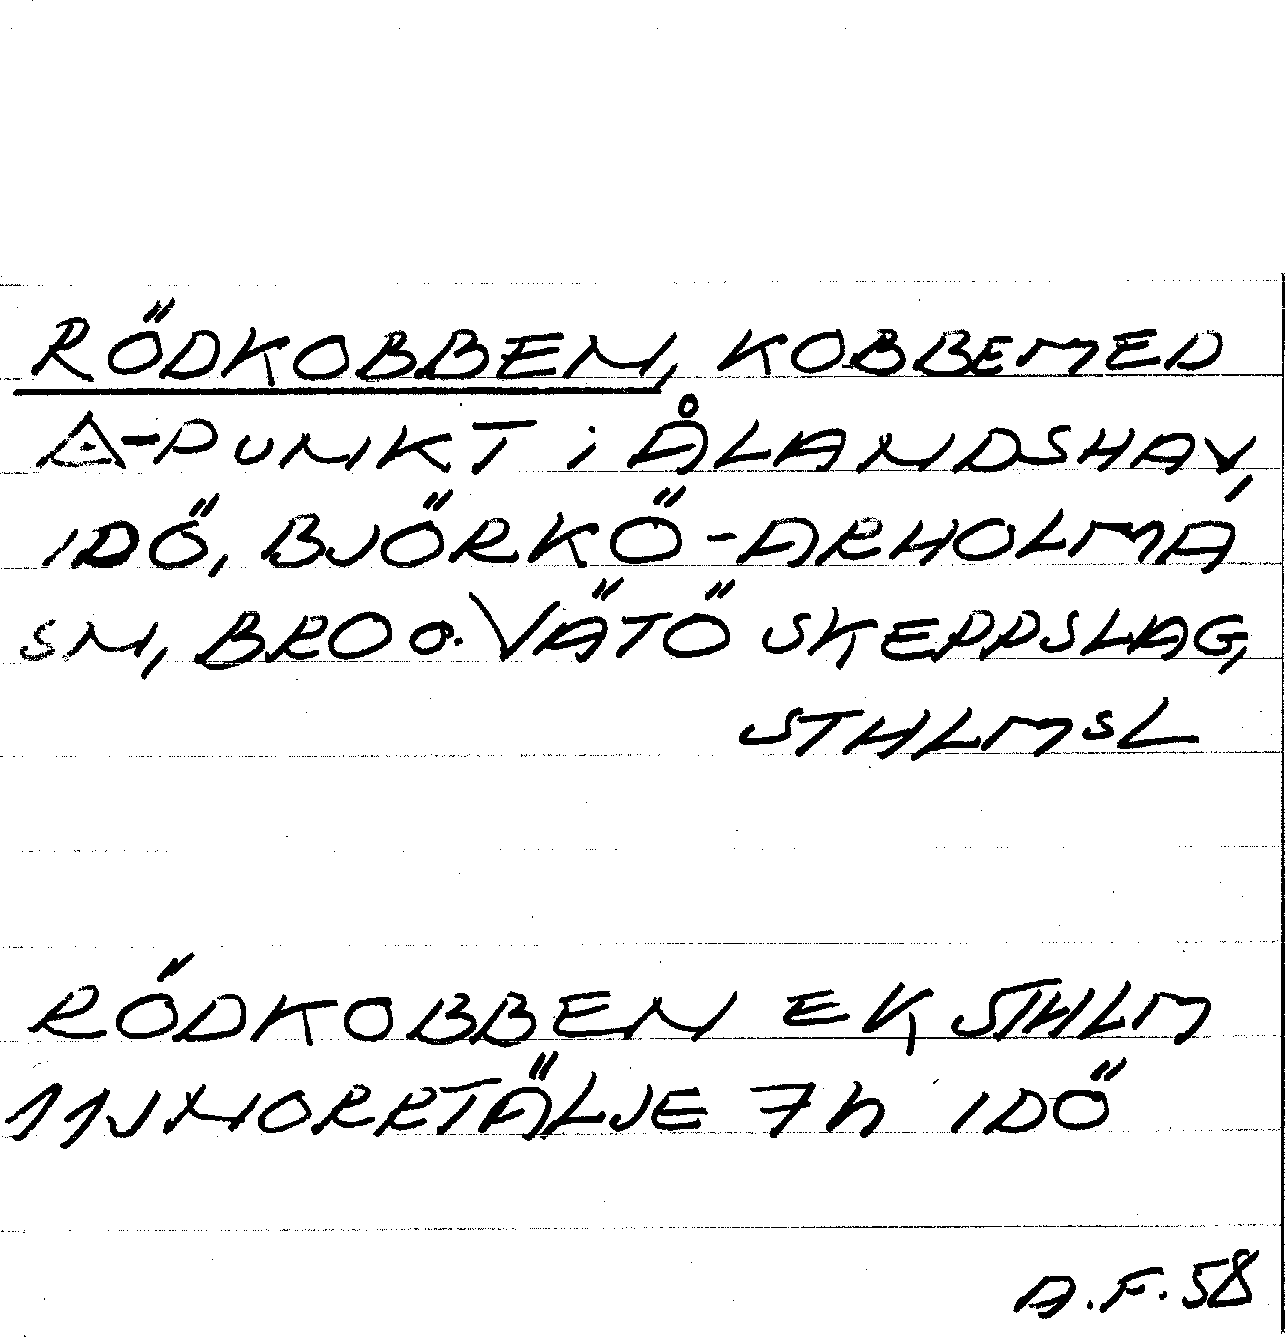 RÖDKOBBEN, KOBBE MED
△-PUNKT i ÅLANDS HAV,
IDÖ, BJÖRKÖ-ARHOLMA
SN, BRO O. VÄTÖ SKEPPSLAG,
STHLMS L
RÖDKOBBEN EK STHLM
11J NORRTÄLJE 7h IDÖ
A.F. 58